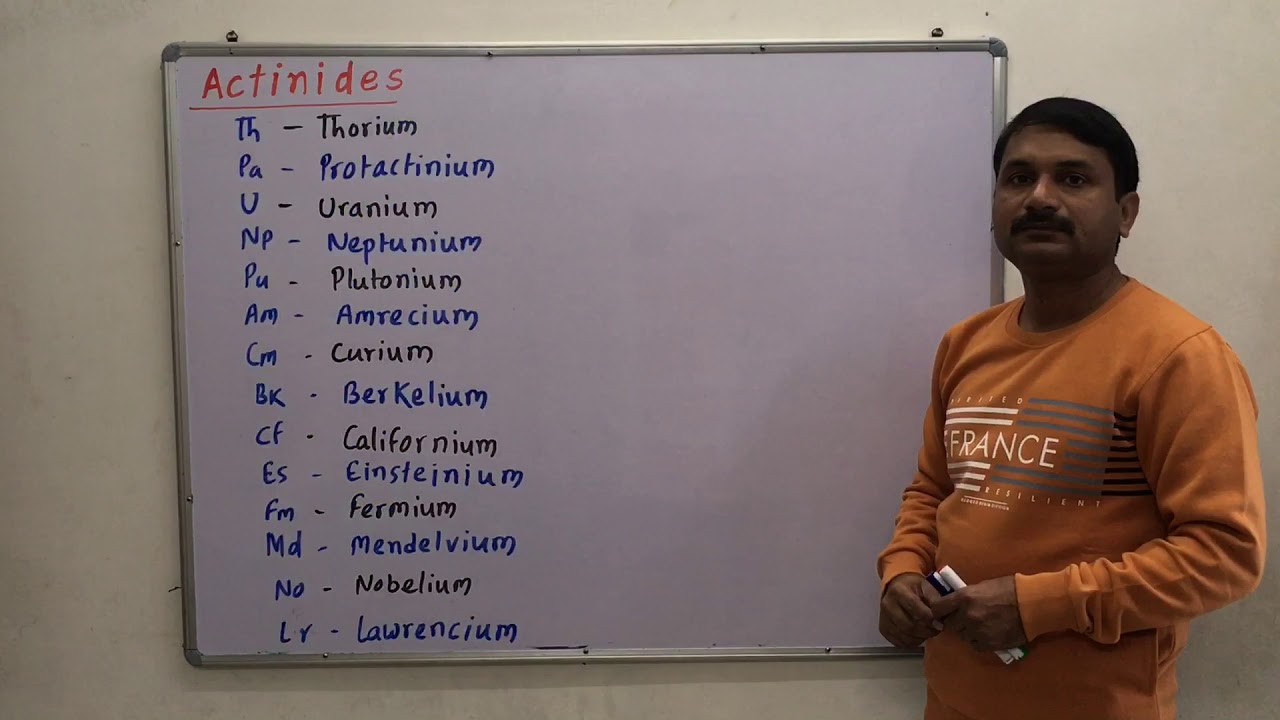 Actinides
Th - Thorium
Pa - Protactinium
U - Uranium
Np - Neptunium
Pu - Plutonium
Am - Amrecium
Cm - Curium
Bk - Berkelium
Cf - Californium
Es - Einsteinium
Fm - Fermium
Md - Mendelvium
No - Nobelium
Lr - Lawrencium
FRANCE
RESILIENT